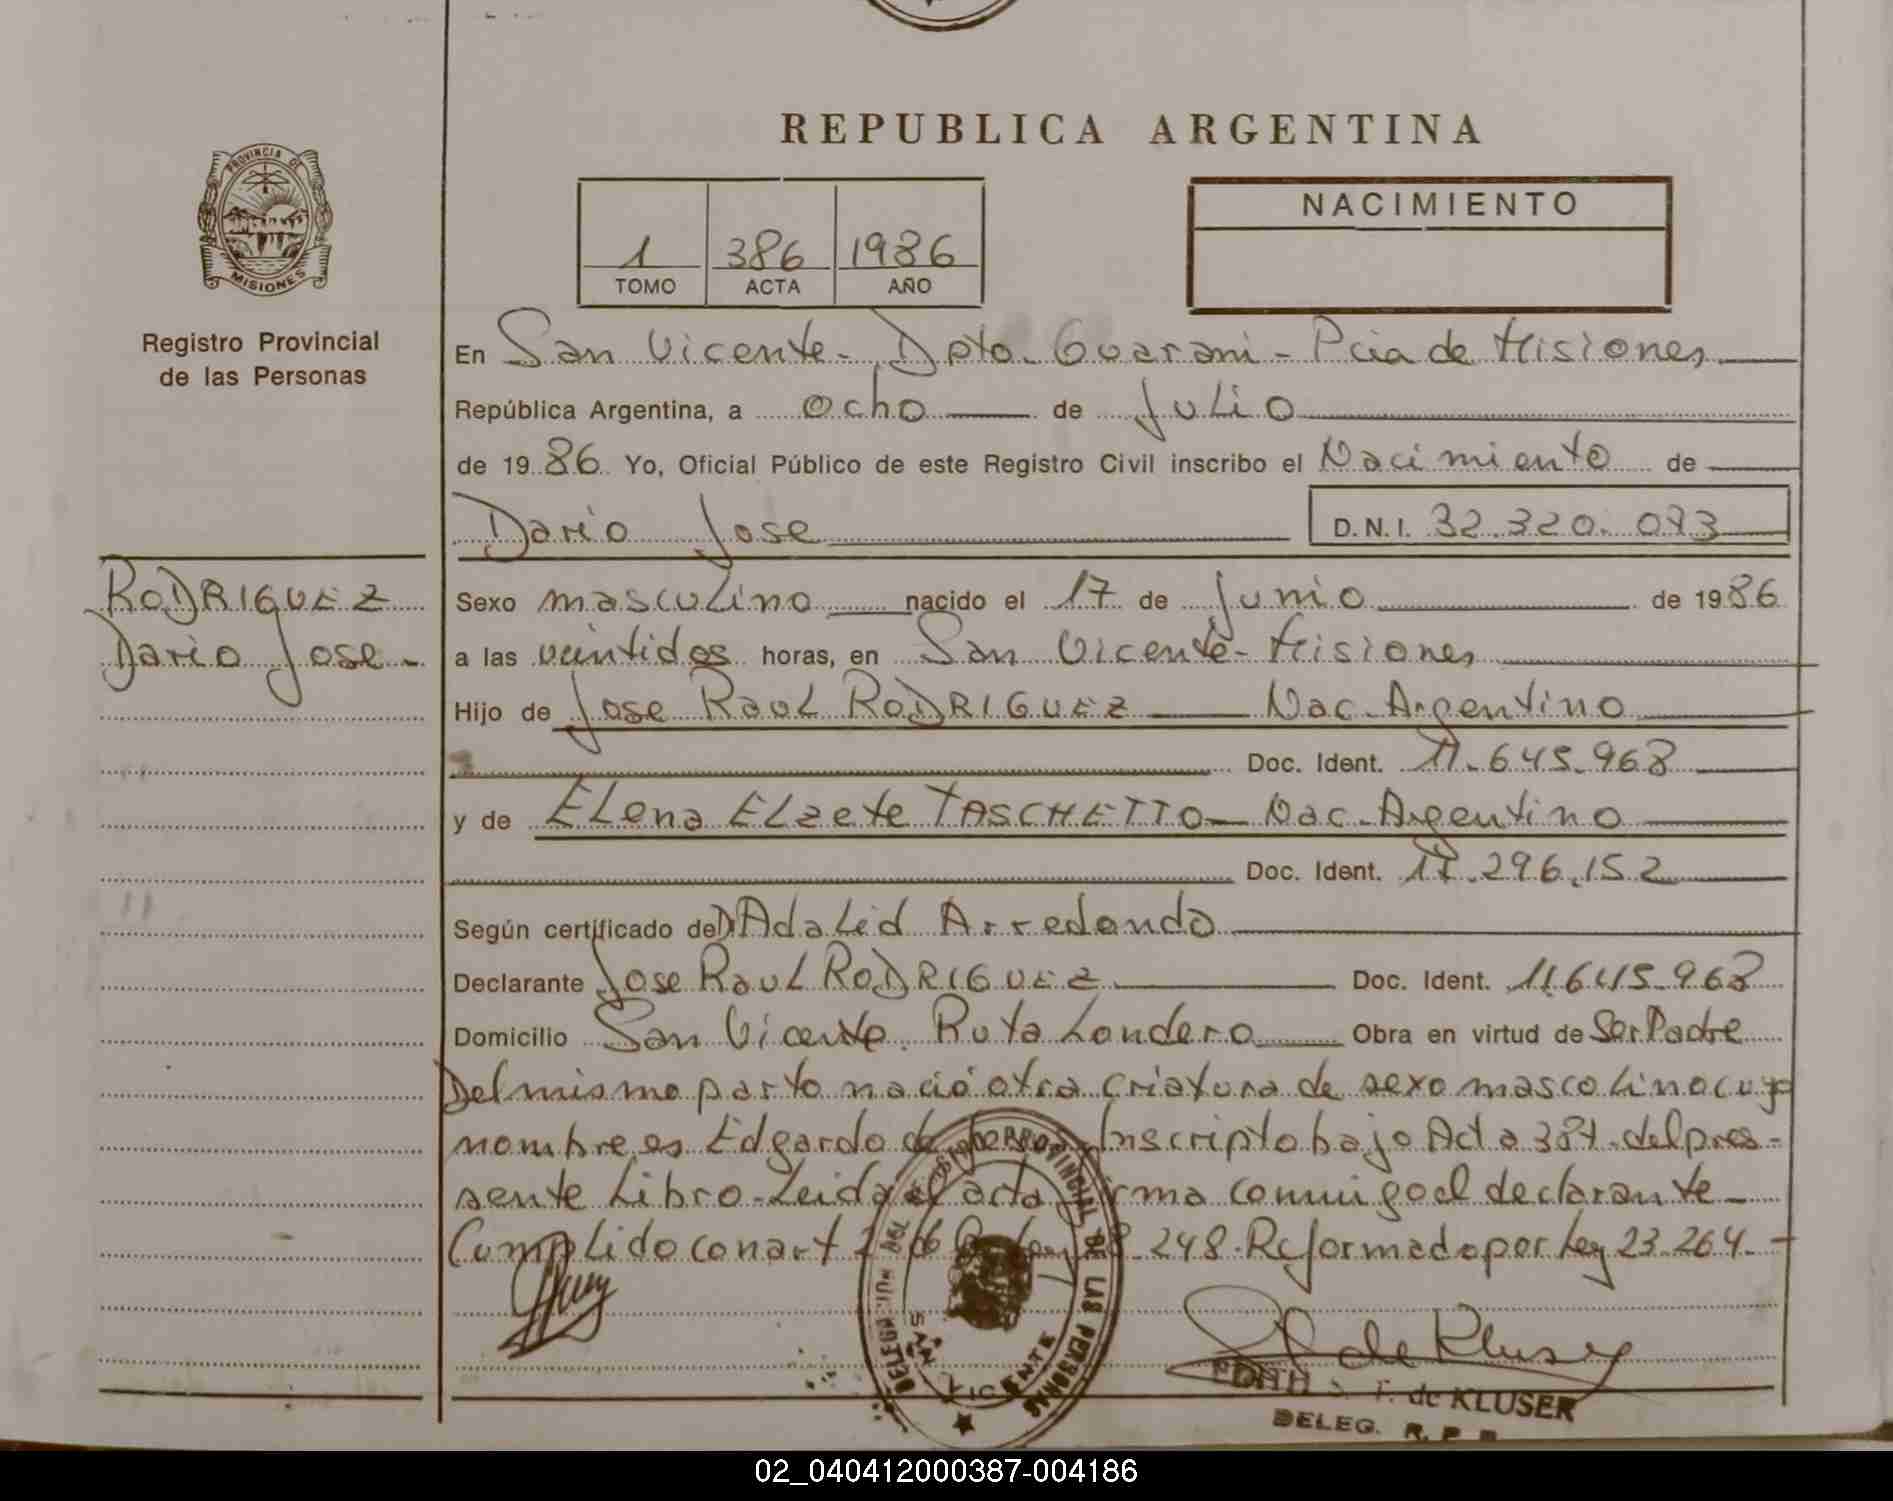 REPUBLICA ARGENTINA
PROVINCIA DE
MISIONES
Registro Provincial
de las Personas
1 386 1986
TOMO ACTA AÑO
NACIMIENTO
En San Vicente - Dpto. Guarani - Pcia de Misiones
República Argentina, a ocho de Julio
de 1986 Yo, Oficial Público de este Registro Civil inscribo el Nacimiento de
Dario Jose D.N.I. 32.320.073
RODRIGUEZ
Dario Jose -
Sexo masculino nacido el 17 de Junio de 1986
a las veintidos horas, en San Vicente - Misiones
Hijo de Jose Raul RODRIGUEZ Nac. Argentino
Doc. Ident. 11.645.968
y de Elena Elzete TASCHETTO - Nac. Argentino
Doc. Ident. 17.296.152
Según certificado de Dr Adalid Arredondo
Declarante Jose Raul RODRIGUEZ Doc. Ident. 11.645.968
Domicilio San Vicente. Ruta Londero Obra en virtud de Ser Padre
Del mismo parto nació otra criatura de sexo masculino cuyo
nombre es Edgardo de Inscripto bajo Acta 387. del pre-
sente Libro - Leida el acta firma conmigo el declarante -
Cumplido con art 2 de 248. Reformado por Ley 23.264. -
REGISTRO PROVINCIAL DE LAS PERSONAS
SAN VICENTE
de KLUSER
DELEG. R. P. P.
02_040412000387-004186